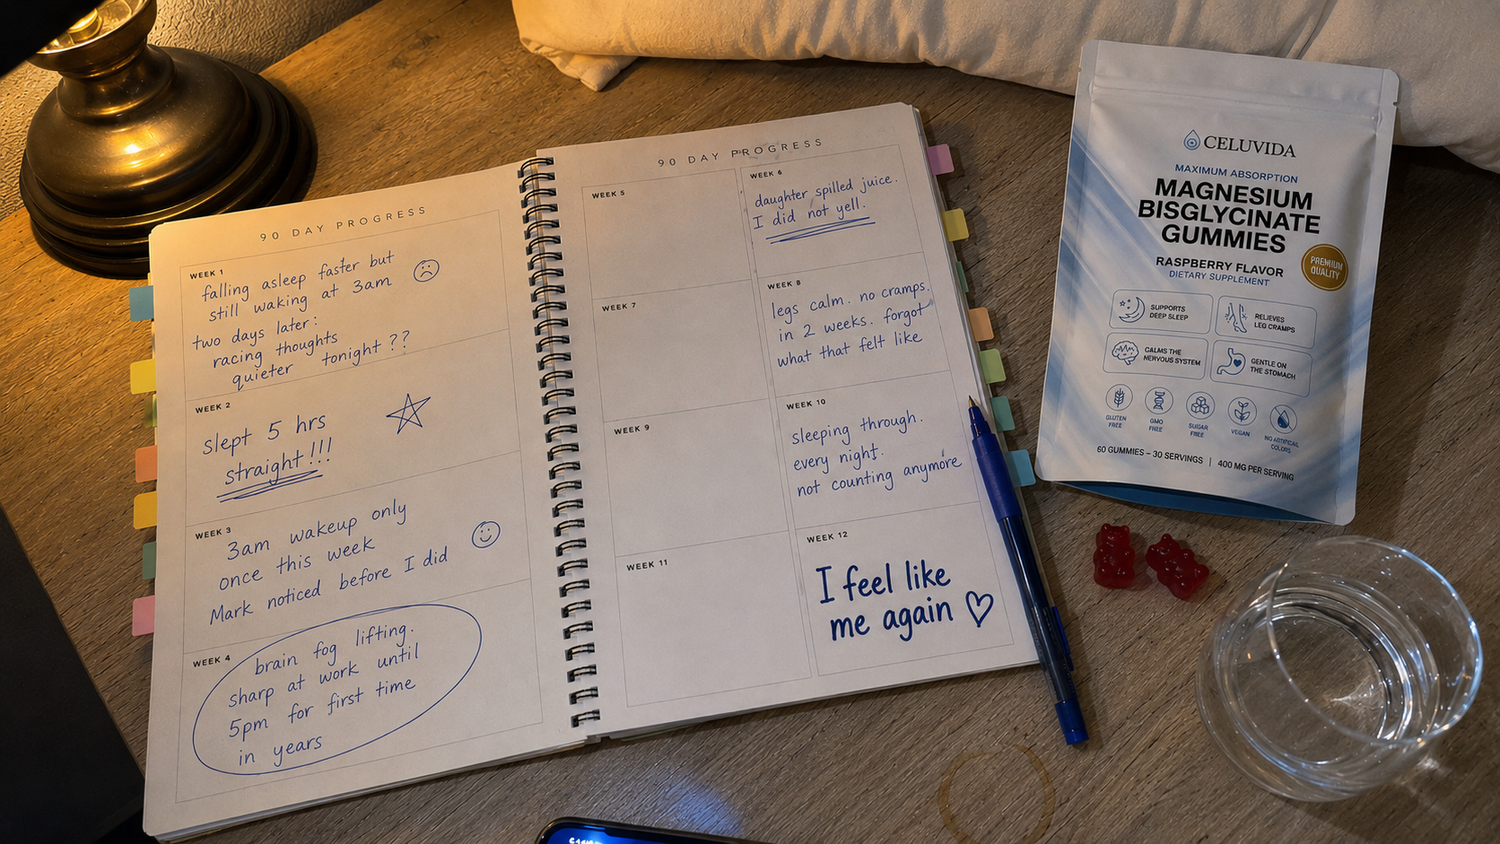 90 DAY PROGRESS
WEEK 1
falling asleep faster but
still waking at 3am
two days later:
racing thoughts
quieter tonight ??
WEEK 2
slept 5 hrs
straight!!!
WEEK 3
3am wakeup only
once this week
Mark noticed before I did
WEEK 4
brain fog lifting.
sharp at work until
5pm for first time
in years
90 DAY PROGRESS
WEEK 5
WEEK 6
daughter spilled juice.
I did not yell.
WEEK 7
WEEK 8
legs calm. no cramps.
in 2 weeks. forgot
what that felt like
WEEK 9
WEEK 10
sleeping through.
every night.
not counting anymore
WEEK 11
WEEK 12
I feel like
me again
CELUVIDA
MAXIMUM ABSORPTION
MAGNESIUM
BISGLYCINATE
GUMMIES
RASPBERRY FLAVOR
DIETARY SUPPLEMENT
PREMIUM
QUALITY
SUPPORTS
DEEP SLEEP
RELIEVES
LEG CRAMPS
CALMS THE
NERVOUS SYSTEM
GENTLE ON
THE STOMACH
GLUTEN
FREE
GMO
FREE
SUGAR
FREE
VEGAN
NO ARTIFICIAL
COLORS
60 GUMMIES – 30 SERVINGS | 400 MG PER SERVING